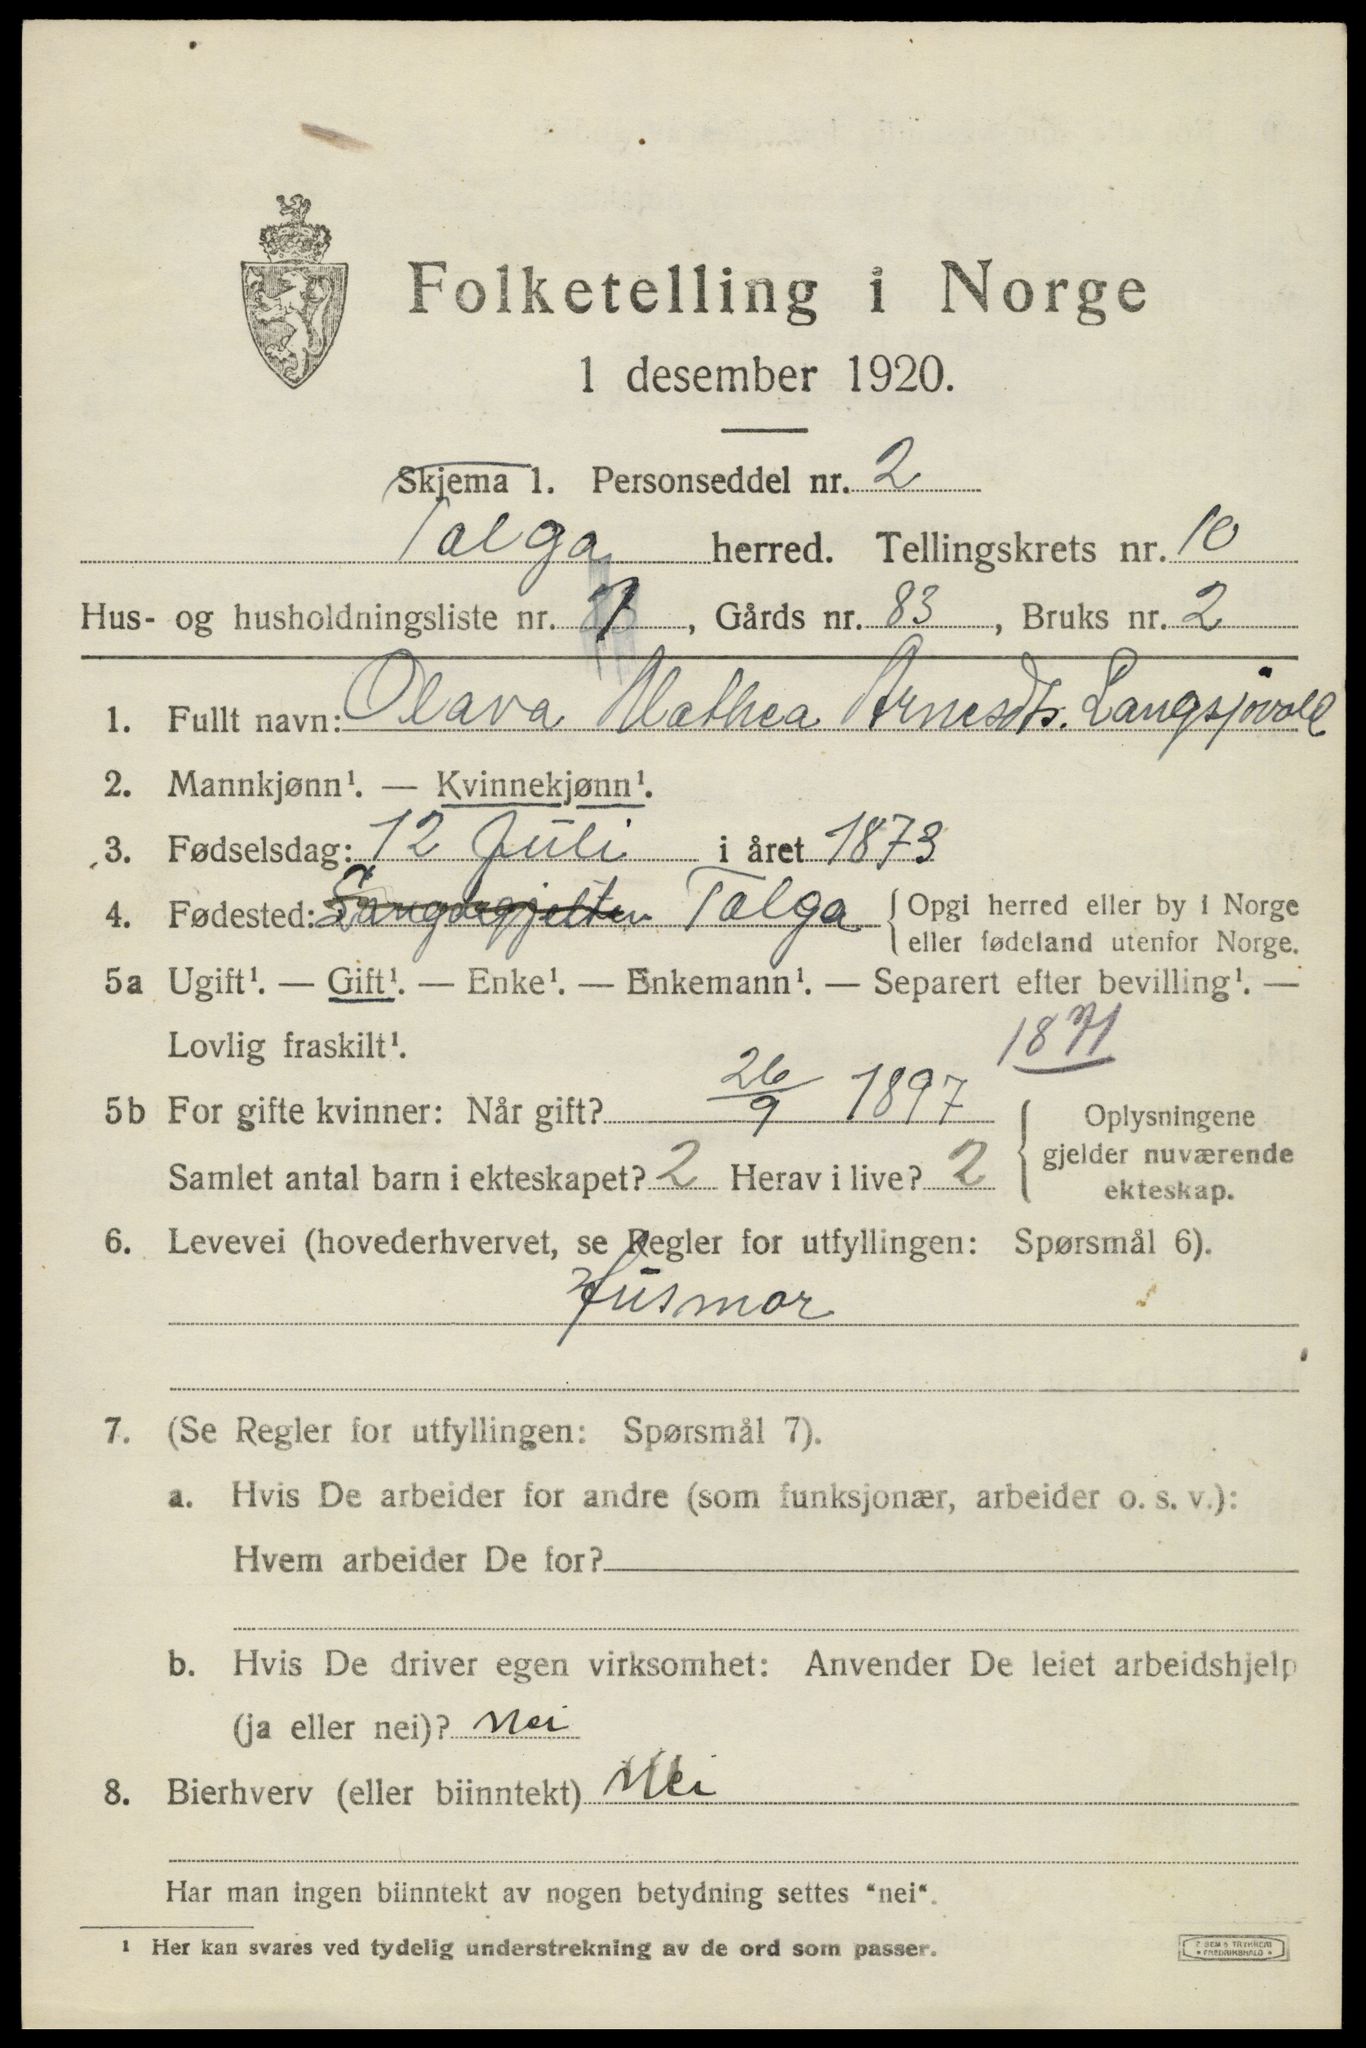 Folketelling i Norge
1 desember 1920.
Skjema 1. Personseddel nr. 2
Tolga herred. Tellingskrets nr. 10
Hus- og husholdningsliste nr. , Gårds nr. 83, Bruks nr. 2
1. Fullt navn: Olava Mathea Arnesdtr. Langsjøvold
2. Mannkjønn¹. — Kvinnekjønn¹.
3. Fødselsdag: 12 Juli i året 1873
4. Fødested: Tolga { Opgi herred eller by i Norge
eller fødeland utenfor Norge.
5a Ugift¹. — Gift¹. — Enke¹. — Enkemann¹. — Separert efter bevilling¹. —
Lovlig fraskilt¹. 1871
5b For gifte kvinner: Når gift? 26/9 1897 { Oplysningene
gjelder nuværende
Samlet antal barn i ekteskapet? 2 Herav i live? 2 ekteskap.
6. Levevei (hovederhvervet, se Regler for utfyllingen: Spørsmål 6).
Husmor
7. (Se Regler for utfyllingen: Spørsmål 7).
a. Hvis De arbeider for andre (som funksjonær, arbeider o. s. v.):
Hvem arbeider De for?
b. Hvis De driver egen virksomhet: Anvender De leiet arbeidshjelp
(ja eller nei)? Nei
8. Bierhverv (eller biinntekt) Nei
Har man ingen biinntekt av nogen betydning settes "nei".
¹ Her kan svares ved tydelig understrekning av de ord som passer.